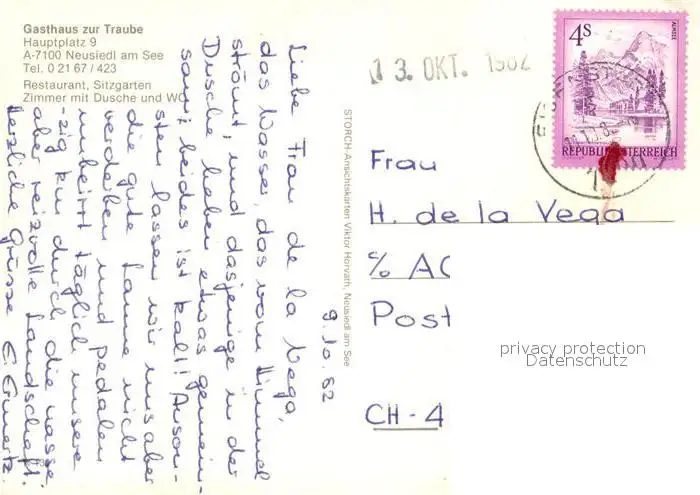 Gasthaus zur Traube
Hauptplatz 9
A-7100 Neusiedl am See
Tel. 0 21 67 / 423
Restaurant, Sitzgarten
Zimmer mit Dusche und WC
9.10.82
Liebe Frau de la Vega,
das Wasser, das vom Himmel
strömt, und dasjenige in der
Dusche haben etwas gemein-
sam; beides ist kalt! Anson-
sten lassen wir uns aber
die gute Laune nicht
verderben und pedalen
unbeirrt täglich unsere
-zig km durch die nasse
aber reizvolle Landschaft.
Herzliche Grüsse E. Ermertz.
STORCH-Ansichtskarten Viktor Horvath, Neusiedl am See
13. OKT. 1982
4S
ALMSEE
REPUBLIK ÖSTERREICH
Frau
H. de la Vega
% AC
Post
CH - 4
privacy protection
Datenschutz